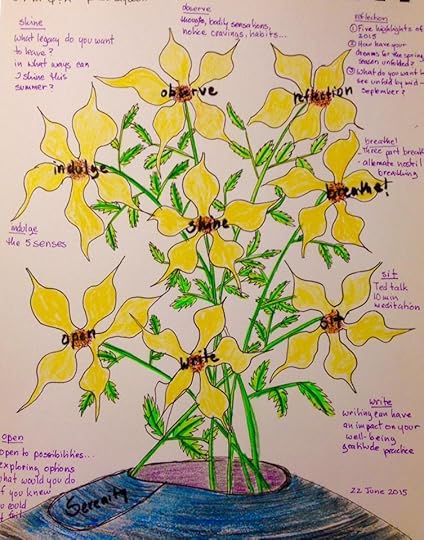 observe
thoughts, bodily sensations,
notice cravings, habits...
shine
What legacy do you want
to leave?
in what ways can
I shine this
summer?
reflection
① Five highlights of
2015
② How have your
dreams for the spring
season unfolded?
③ What do you want
see unfold by mid-
September?
observe
reflection
indulge
breathe!
shine
open
write
sit
breathe!
Three part
- alternate nostril
breathing
indulge
the 5 senses
sit
Ted talk
10 min
meditation
write
writing can have
an impact on your
well-being
gratitude practice
open
open to possibilities...
exploring options
what would you do
if you knew
you could
Serenity
22 June 2015